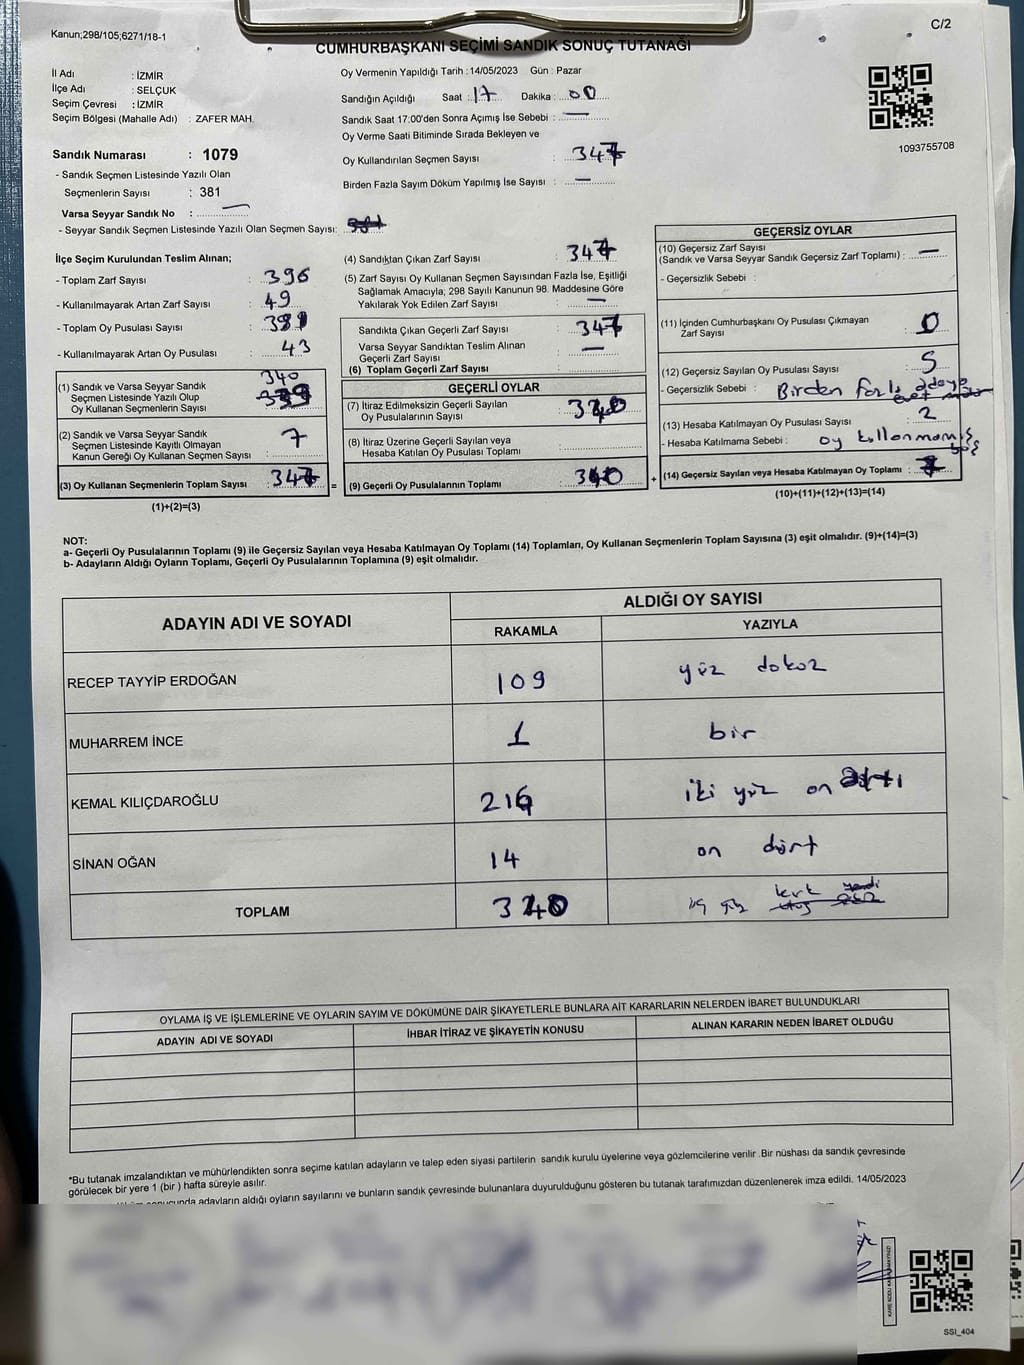 Kanun;298/105;6271/18-1
C/2
CUMHURBAŞKANI SEÇİMİ SANDIK SONUÇ TUTANAĞI
İl Adı : İZMİR
İlçe Adı : SELÇUK
Seçim Çevresi : İZMİR
Seçim Bölgesi (Mahalle Adı) : ZAFER MAH.
Sandık Numarası : 1079
- Sandık Seçmen Listesinde Yazılı Olan
Seçmenlerin Sayısı : 381
Varsa Seyyar Sandık No : —
- Seyyar Sandık Seçmen Listesinde Yazılı Olan Seçmen Sayısı:
Oy Vermenin Yapıldığı Tarih :14/05/2023 Gün : Pazar
Sandığın Açıldığı Saat : 17 Dakika : 00
Sandık Saat 17.00'den Sonra Açımış İse Sebebi : —
Oy Verme Saati Bitiminde Sırada Bekleyen ve
Oy Kullandırılan Seçmen Sayısı : 347
Birden Fazla Sayım Döküm Yapılmış İse Sayısı : —
1093755708
İlçe Seçim Kurulundan Teslim Alınan;
- Toplam Zarf Sayısı : 396
- Kullanılmayarak Artan Zarf Sayısı : 49
- Toplam Oy Pusulası Sayısı :
- Kullanılmayarak Artan Oy Pusulası : 43
340
(1) Sandık ve Varsa Seyyar Sandık
Seçmen Listesinde Yazılı Olup
Oy Kullanan Seçmenlerin Sayısı
(2) Sandık ve Varsa Seyyar Sandık
Seçmen Listesinde Kayıtlı Olmayan
Kanun Gereği Oy Kullanan Seçmen Sayısı : 7
(3) Oy Kullanan Seçmenlerin Toplam Sayısı : 347 =
(1)+(2)=(3)
(4) Sandıktan Çıkan Zarf Sayısı : 347
(5) Zarf Sayısı Oy Kullanan Seçmen Sayısından Fazla İse, Eşitliği
Sağlamak Amacıyla; 298 Sayılı Kanunun 98. Maddesine Göre
Yakılarak Yok Edilen Zarf Sayısı : —
Sandıkta Çıkan Geçerli Zarf Sayısı : 347
Varsa Seyyar Sandıktan Teslim Alınan
Geçerli Zarf Sayısı : —
(6) Toplam Geçerli Zarf Sayısı :
GEÇERLİ OYLAR
(7) İtiraz Edilmeksizin Geçerli Sayılan
Oy Pusulalarının Sayısı : 340
(8) İtiraz Üzerine Geçerli Sayılan veya
Hesaba Katılan Oy Pusulası Toplamı :
(9) Geçerli Oy Pusulalarının Toplamı : 340 +
GEÇERSİZ OYLAR
(10) Geçersiz Zarf Sayısı
(Sandık ve Varsa Seyyar Sandık Geçersiz Zarf Toplamı) : —
- Geçersizlik Sebebi :
(11) İçinden Cumhurbaşkanı Oy Pusulası Çıkmayan
Zarf Sayısı : 0
(12) Geçersiz Sayılan Oy Pusulası Sayısı : 5
- Geçersizlik Sebebi : Birden fazla adaya
(13) Hesaba Katılmayan Oy Pusulası Sayısı : 2
- Hesaba Katılmama Sebebi : oy kullanmamış
boş
(14) Geçersiz Sayılan veya Hesaba Katılmayan Oy Toplamı : 7
(10)+(11)+(12)+(13)=(14)
NOT:
a- Geçerli Oy Pusulalarının Toplamı (9) ile Geçersiz Sayılan veya Hesaba Katılmayan Oy Toplamı (14) Toplamları, Oy Kullanan Seçmenlerin Toplam Sayısına (3) eşit olmalıdır. (9)+(14)=(3)
b- Adayların Aldığı Oyların Toplamı, Geçerli Oy Pusulalarının Toplamına (9) eşit olmalıdır.
ADAYIN ADI VE SOYADI ALDIĞI OY SAYISI
RAKAMLA YAZIYLA
RECEP TAYYİP ERDOĞAN 109 yüz dokuz
MUHARREM İNCE 1 bir
KEMAL KILIÇDAROĞLU 216 iki yüz on altı
SİNAN OĞAN 14 on dört
TOPLAM 340 üç yüz kırk
OYLAMA İŞ VE İŞLEMLERİNE VE OYLARIN SAYIM VE DÖKÜMÜNE DAİR ŞİKAYETLERLE BUNLARA AİT KARARLARIN NELERDEN İBARET BULUNDUKLARI
ADAYIN ADI VE SOYADI İHBAR İTİRAZ VE ŞİKAYETİN KONUSU ALINAN KARARIN NEDEN İBARET OLDUĞU
*Bu tutanak imzalandıktan ve mühürlendikten sonra seçime katılan adayların ve talep eden siyasi partilerin sandık kurulu üyelerine veya gözlemcilerine verilir .Bir nüshası da sandık çevresinde
görülecek bir yere 1 (bir ) hafta süreyle asılır.
sonucunda adayların aldığı oyların sayılarını ve bunların sandık çevresinde bulunanlara duyurulduğunu gösteren bu tutanak tarafımızdan düzenlenerek imza edildi. 14/05/2023
SSI_404